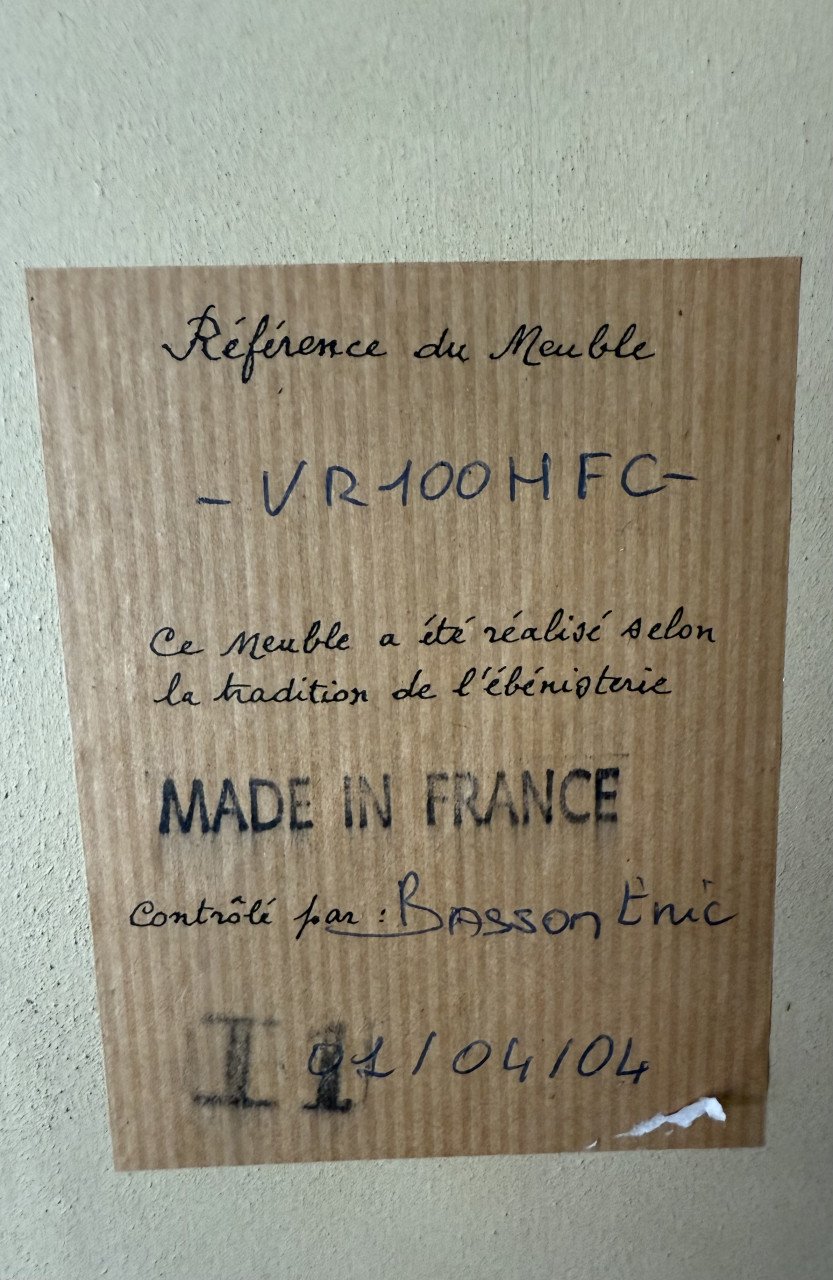 Référence du Meuble
- VR100HFC -
Ce Meuble a été réalisé selon
la tradition de l'ébénisterie
MADE IN FRANCE
Contrôlé par : BASSON Eric
I1 01/04/04